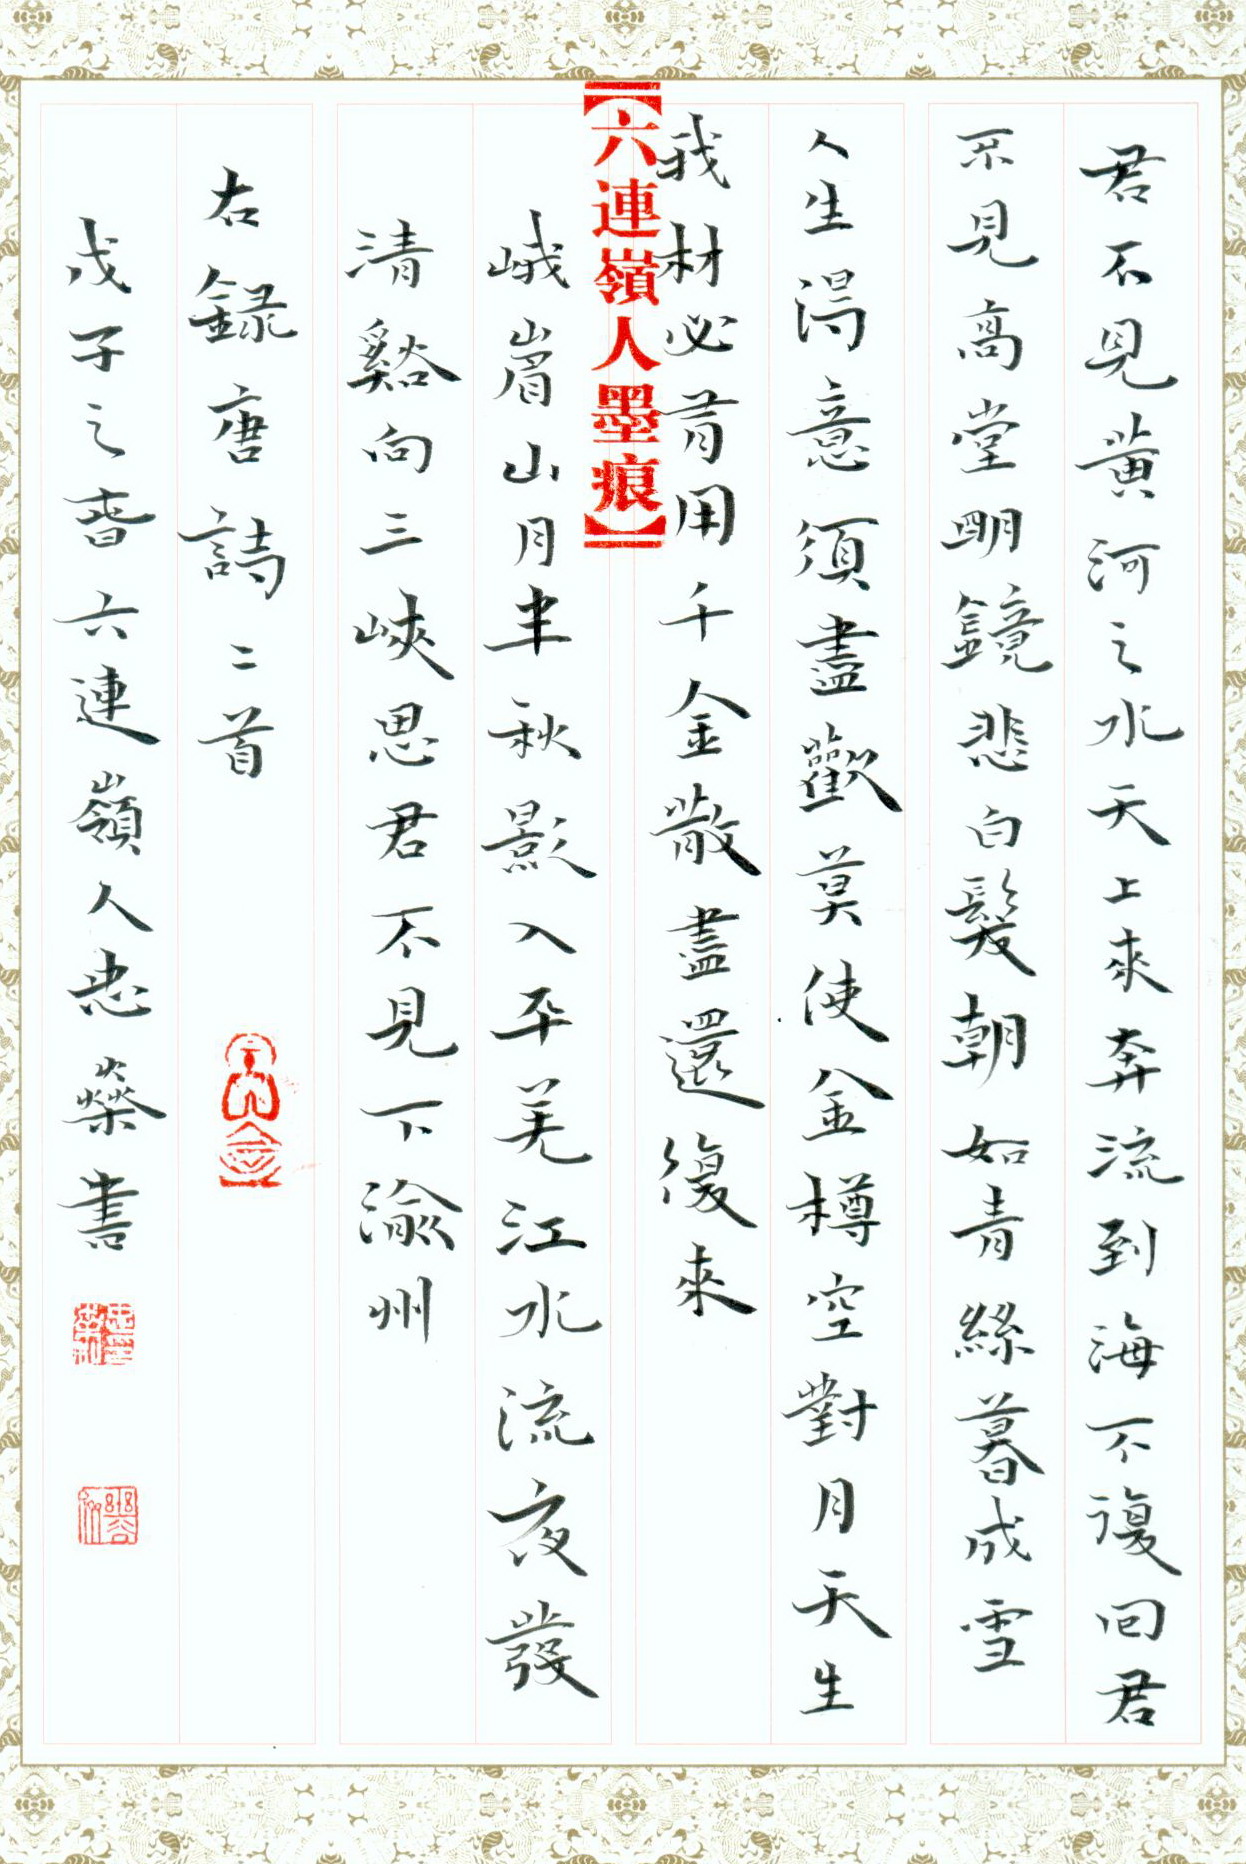 君不見黃河之水天上來奔流到海不復回君
不見高堂明鏡悲白髮朝如青絲暮成雪
人生得意須盡歡莫使金樽空對月天生
我材必有用千金散盡還復來
【六連嶺人墨痕】
峨眉山月半秋影入平羌江水流夜發
清谿向三峽思君不見下渝州
右錄唐詩二首
戊子之春六連嶺人忠榮書